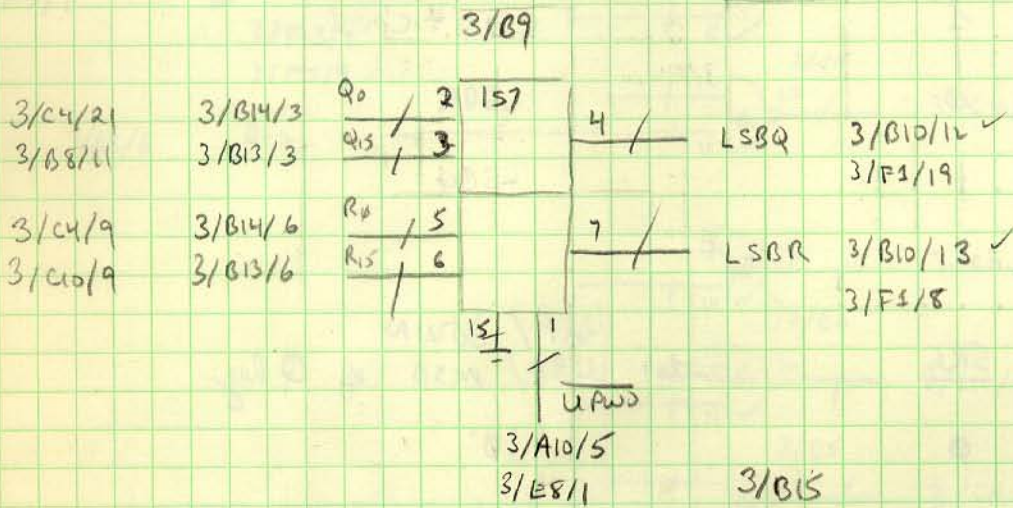 3/B9
3/C4/21 3/B14/3 Q0 2 157 4 LSBQ 3/B10/12 ✓
3/B8/11 3/B13/3 Q15 3 3/F1/19
3/C4/9 3/B14/6 R0 5 7 LSBR 3/B10/13 ✓
3/C10/9 3/B13/6 R15 6 3/F1/8
15 1
3/A10/5
3/E8/1 3/B15